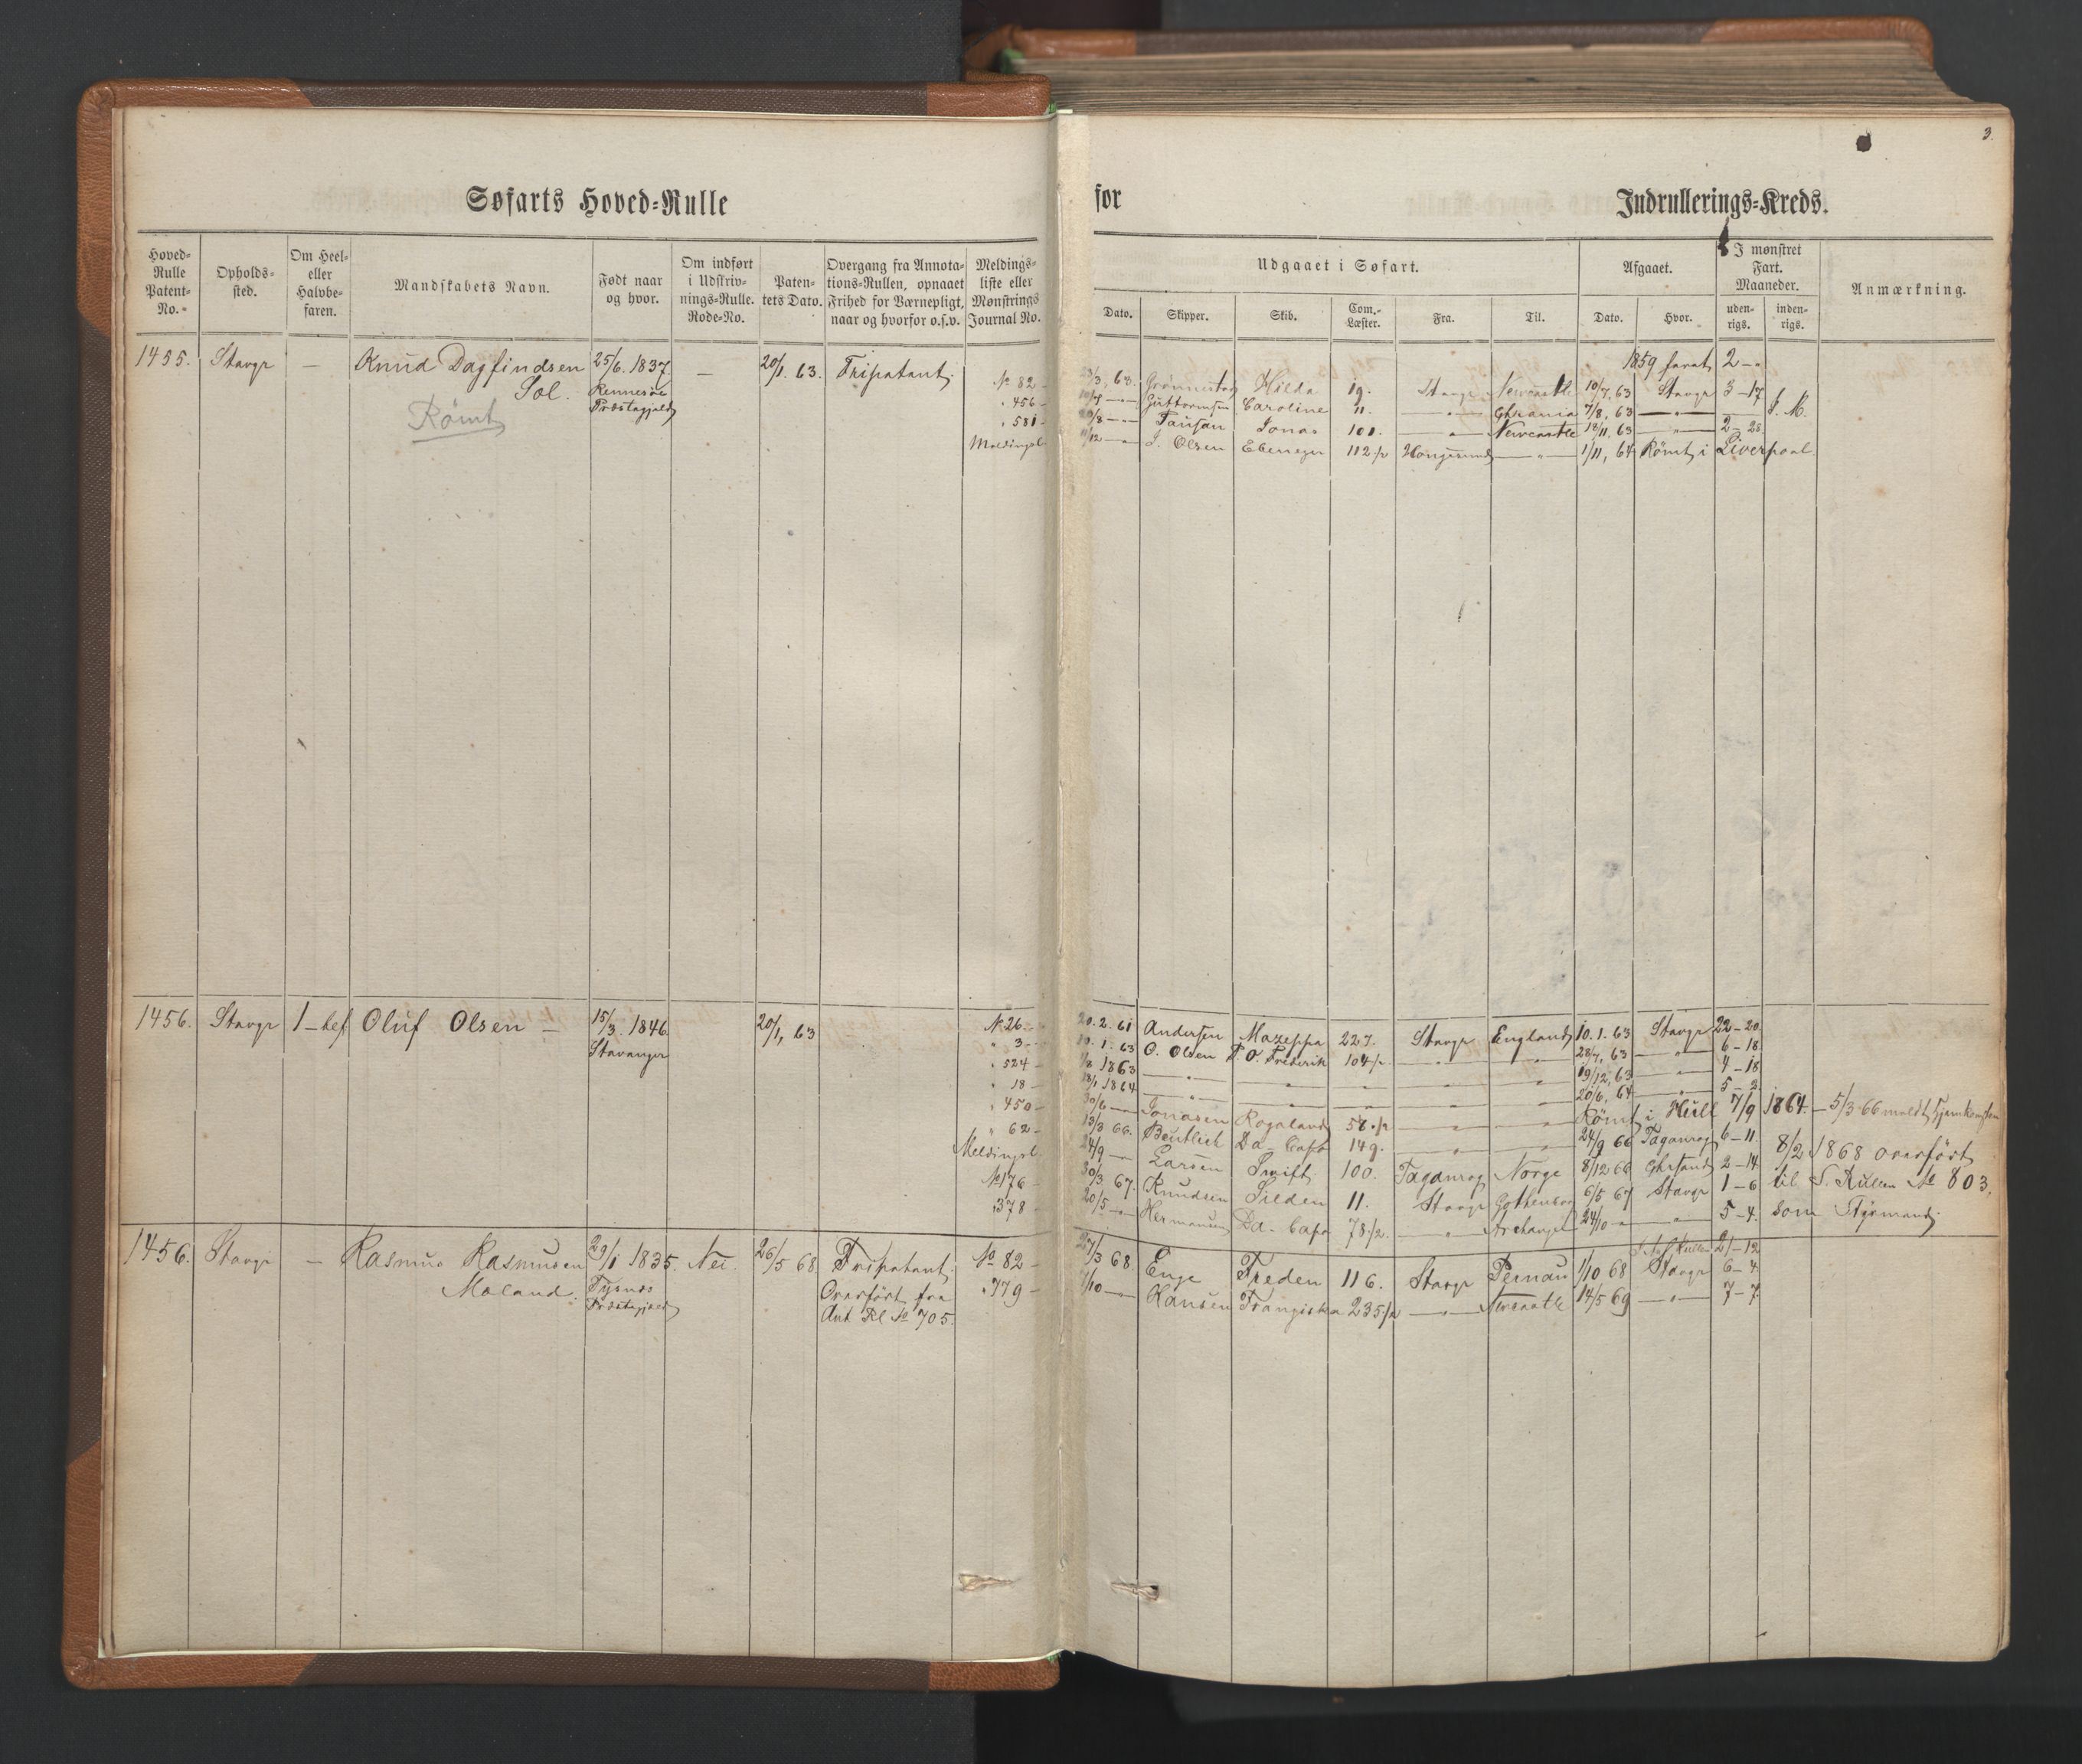 3.
Søfarts Hoved-Rulle for Indrullerings-Kreds.
Hoved-Rulle Patent-No. Opholds-sted. Om Heel- eller Halvbe-faren. Mandskabets Navn. Født naar og hvor. Om indført i Udskriv-nings-Rulle. Rode-No. Paten-tets Dato. Overgang fra Annota-tions-Rullen, opnaaet Frihed for Værnepligt, naar og hvorfor o.s.v. Meldings-liste eller Mønstrings Journal No.
Udgaaet i Søfart. Afgaaet. I mønstret Fart. Maaneder. Anmærkning.
Dato. Skipper. Skib. Com.-Læster. Fra. Til. Dato. Hvor. uden-rigs. inden-rigs.
1455. Stavgr — Knud Dagfindsen 25/6. 1837 — 20/1. 63. Fripatent
Sol. Rennesøe
Præstegjeld
Römt
1859 faret 2 - "
No 82 - Hilda 19. Stavgr Newcastle 10/7, 63 Stavgr 3 - 17
" 456 - Guttormsen Caroline 11. —"— Chrania 7/8, 63 —"— I. M.
" 581 - Jonas 101. —"— Newcastle 18/11. 63 —"— 2 - 28
Meldingsl. J. Olsen Ebeneger 112 1/2 Haugesund —"— 1/11, 64 Römt i Liverpool
1456. Stavgr 1-bef Oluf Olsen — 15/3. 1846 20/1, 63
Stavanger
N. 26. - 20. 2. 61 Andersen Mazeppa 227. Stavgr England 10. 1. 63 Stavgr 22 - 20
" 3 - 10. 1. 63 O. Olsen P. O. Frederik 104 1/2 —"— " 28/7, 63 —"— 6 - 18
" 524 - 1/8 1863 —"— " " —"— " 19/12, 63 —"— 4 - 18
" 18 - 18/1 1864 —"— " " —"— " 20/6, 64 —"— 5 - 2
" 450 - 30/6 —"— Jonasen Rogaland 58 1/2 —"— —"— Römt i Hull 7/9 1864. — 5/3 66 meldt Hjemkomsten
" 62 - 13/3 66. Bentlich Da-Capo 149. —"— —"— 24/9 66 Taganrog 6 - 11
Meldingsl. 24/9 —"— Larsen Swift 100. Taganrog Norge 8/12 66 Chrsand 2 - 14
No 176 - 30/3 67. Knudsen Silden 11. Stavgr Gothenborg 6/5 67 Stavgr 1 - 6
" 378 - 20/5 —"— Hermansen Da-Capo 78 1/2. —"— Archangel 24/10 —"— —"— 5 - 4.
8/2 1868 overført
til S. Rullen No 803,
som Styrmand.
1456. Stavgr — Rasmus Rasmusen 29/1 1835. Nei. 26/5 68 Fripatent.
Moland. Tysnes Overført fra
Præstegjeld Ant Rl No 705.
21 - 12
No 82 - 27/3 68 Enge Freden 116. Stavgr Pernau 1/10 68 Stavgr 6 - 4
" 779 - 7/10 —"— Hansen Frangiska 235 1/2 —"— Newcastle 14/5 69 —"— 7 - 7